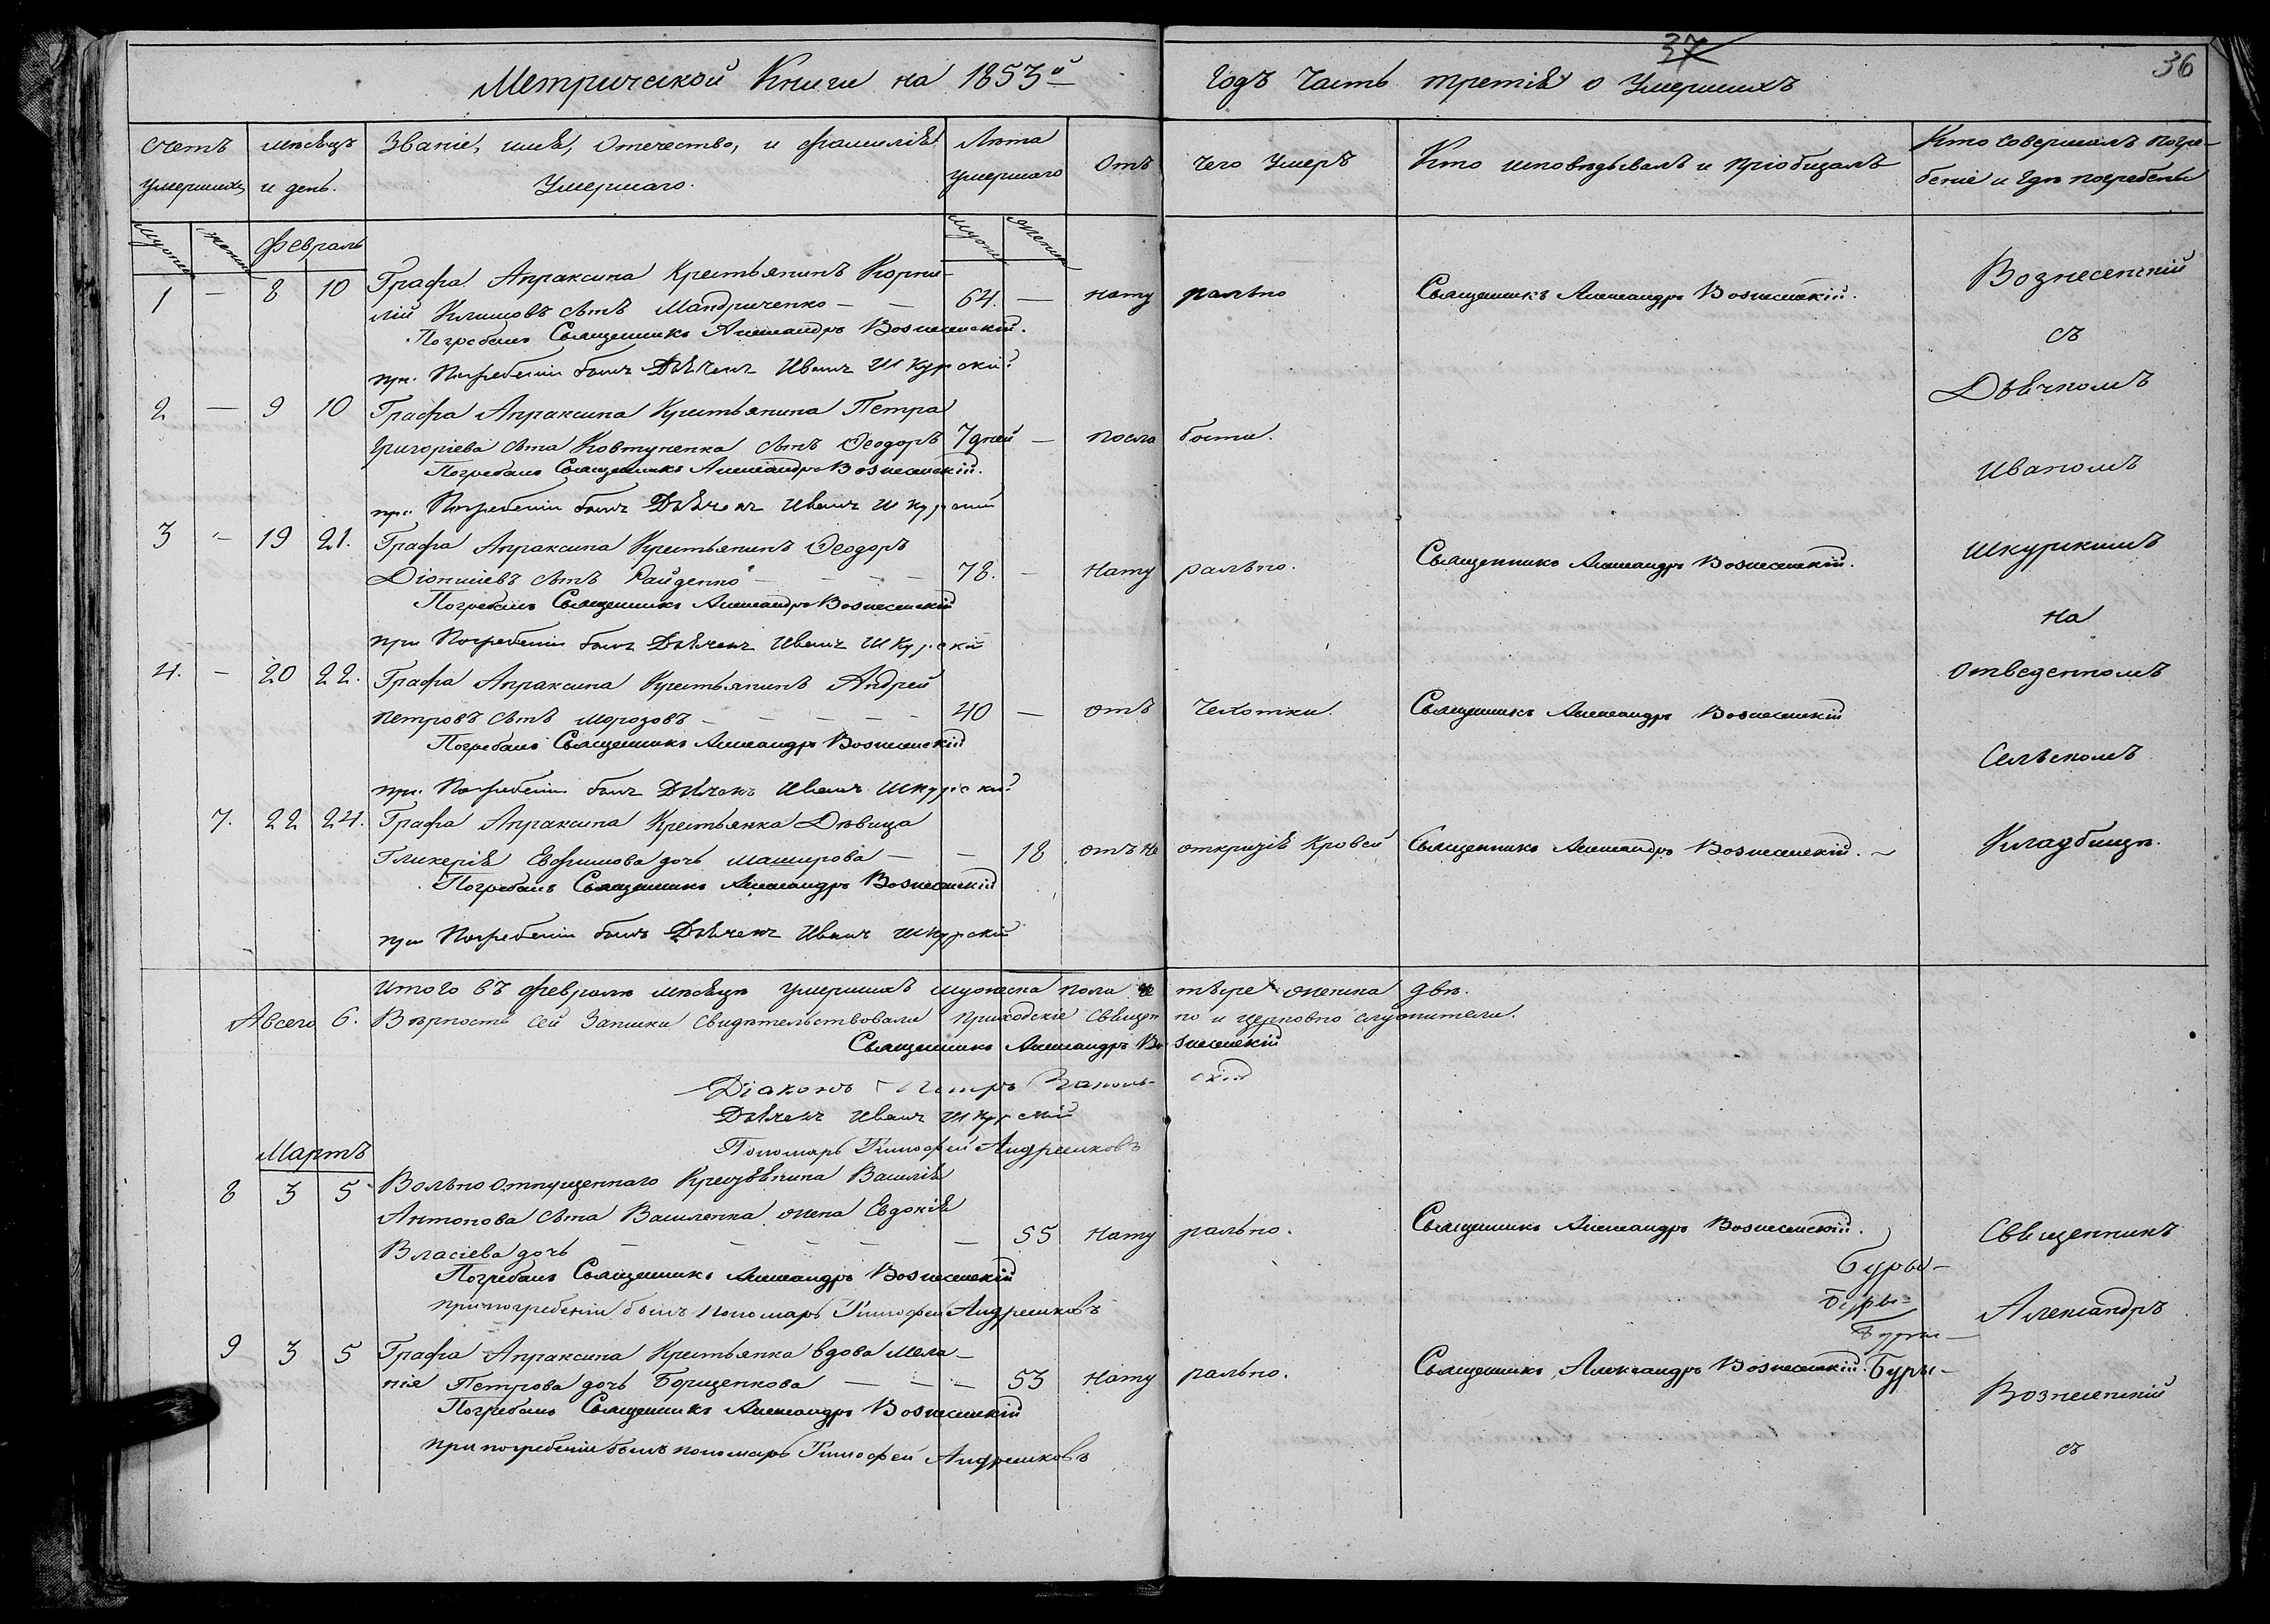 37
36
Метрической Книги на 1853й Годъ Часть третія о Умершихъ
Счетъ умершихъ
мѣсяцъ и день.
Званіе, имя, Отечество, и фамилія Умершаго.
Лѣта умершаго
Отъ чего Умеръ
Кто исповѣдывалъ и пріобщалъ
Кто Совершалъ погребеніе и Гдѣ погребены
Мужеи
Женши
Февраль
Мужеи
Женши
1 — 8 10 Графа Апраксина Крестьянинъ Корни-
лій Климовъ сынъ Мандриченко — — 64. — Нату рально Священникъ Александръ Вознесенскій.
Погребалъ Священникъ Александръ Вознесенскій.
при Погребеніи былъ Дьячекъ Иванъ Шкурскій
2 — 9 10 Графа Апраксина Крестьянина Петра
Григоріева сына Ковтуненка сынъ Ѳеодоръ 7 дней — посла бости.
Погребалъ Священникъ Александръ Вознесенскій.
при Погребеніи былъ Дьячекъ Иванъ Шкурскій
3 — 19 21. Графа Апраксина Крестьянинъ Ѳеодоръ
Діонисіевъ сынъ Гайденко — — — — 78. — Нату рально. Священникъ Александръ Вознесенскій.
Погребалъ Священникъ Александръ Вознесенскій
при Погребеніи былъ Дьячекъ Иванъ Шкурскій
4. — 20 22. Графа Апраксина Крестьянинъ Андрей
Петровъ сынъ Морозовъ — — — — — 40 — отъ Чехотки. Священникъ Александръ Вознесенскій
Погребалъ Священникъ Александръ Вознесенскій
при Погребеніи былъ Дьячекъ Иванъ Шкурскій
7. 22 24. Графа Апраксина Крестьянка Дѣвица
Гликерія Евфимова дочь Маширова — — 18 отъ не откритія Кровей Священникъ Александръ Вознесенскій.
Погребалъ Священникъ Александръ Вознесенскій
при Погребеніи былъ Дьячекъ Иванъ Шкурскій
Вознесенскій
съ
Дьячкомъ
Иваномъ
Шкурскимъ
на
Отведенномъ
Сельскомъ
Кладбищѣ.
Итого въ Февралѣ мѣсяцѣ умершихъ мужеска пола че тыре женска двѣ.
Авсего 6. Вѣрность сей Записки Свидѣтельствовали приходскіе Священ но и церковно служители.
Священникъ Александръ Вознесенскій
Діаконъ
Дьячекъ Иванъ Шкурскій
Пономарь Тимофей Андрешковъ
Мартъ
8 3 5 Вольно отпущеннаго Крестьянина Василія
Антонова сына Василенка жена Евдокія
Власіева дочь — — — — — 55 Нату рально. Священникъ Александръ Вознесенскій.
Погребалъ Священникъ Александръ Вознесенскій
при погребеніи былъ пономарь Тимофей Андрешковъ
Буры-
Буры-
Буры-
9 3 5 Графа Апраксина Крестьянка вдова Мела-
нія Петрова дочь Борщенкова — — — 53 Нату рально. Священникъ Александръ Вознесенскій. Буры-
Погребалъ Священникъ Александръ Вознесенскій
при погребеніи былъ пономарь Тимофей Андрешковъ
Священникъ
Александръ
Вознесенскій
съ